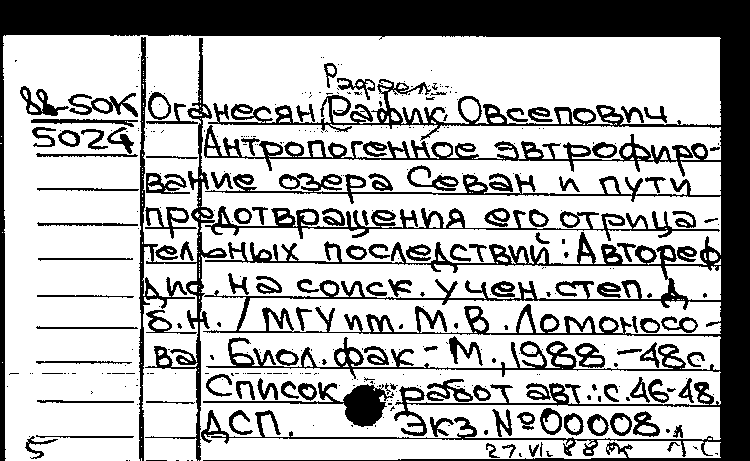 Рафаэл
88-5ОК Оганесян, (Рафик) Овсепович.
5024 Антропогенное эвтрофиро-
вание озера Севан и пути
предотвращения его отрица-
тельных последствий : Автореф
дис. на соиск. учен. степ. д.
б.н. / МГУ им. М.В. Ломоносо-
ва. Биол. фак. - М., 1988. - 48с.
Список работ авт.: с. 46-48.
ДСП. Экз. № 00008.
5 27.VI.88